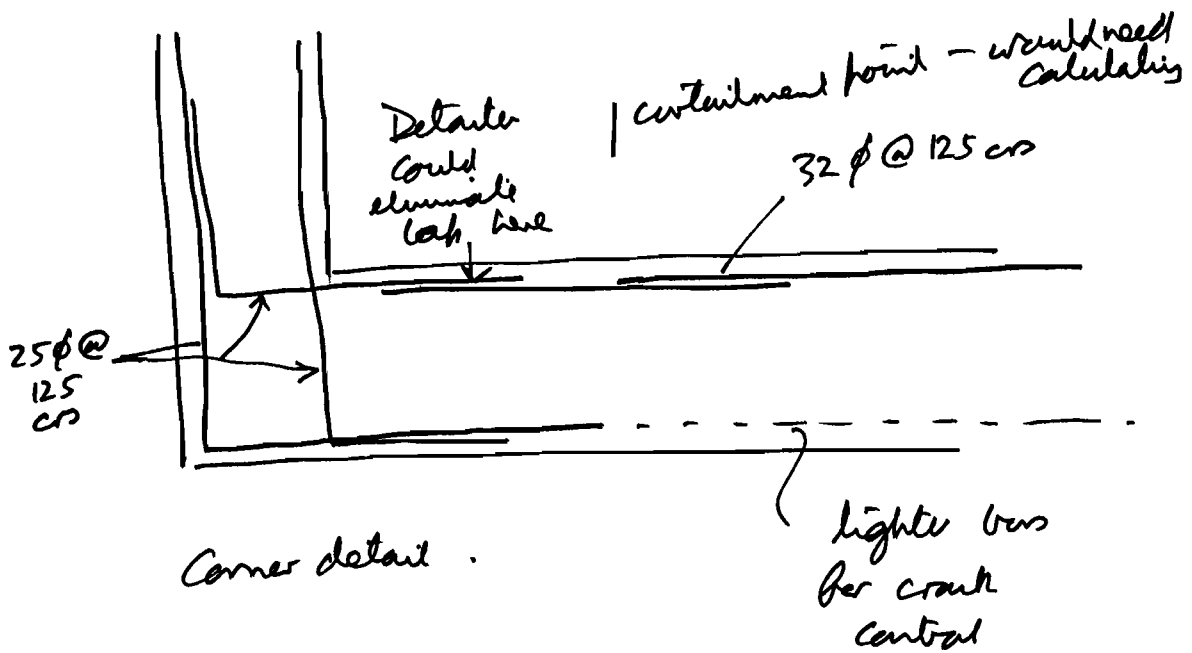 curtailment point – would need
calculating
Detailer
could
eliminate
lap here
32 ϕ @ 125 crs
25ϕ@
125
crs
Corner detail .
lighter bars
for crack
control